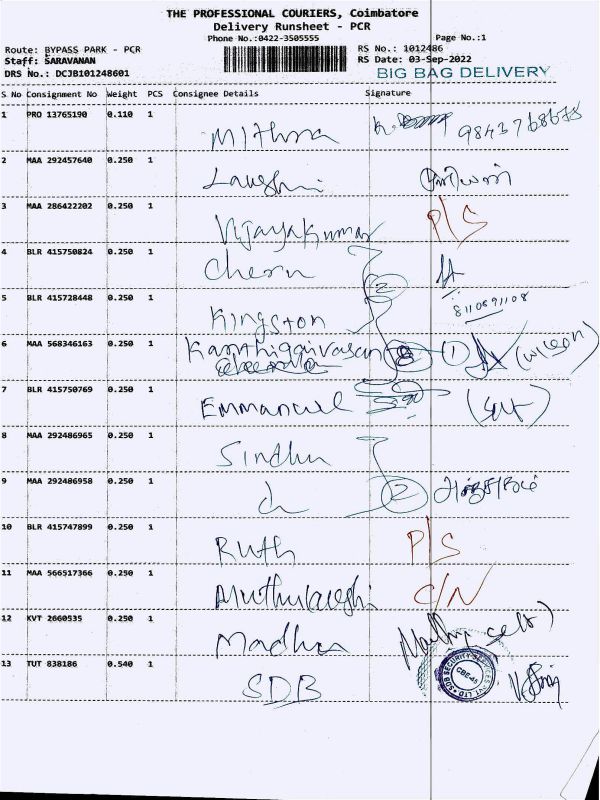 THE PROFESSIONAL COURIERS, Coimbatore
Delivery Runsheet - PCR
Phone No.:0422-3505555 Page No.:1
Route: BYPASS PARK - PCR RS No.: 1012486
Staff: SARAVANAN RS Date: 03-Sep-2022
DRS No.: DCJB101248601 BIG BAG DELIVERY
S No Consignment No Weight PCS Consignee Details Signature
1 PRO 13765190 0.110 1 Mithra
2 MAA 292457640 0.250 1
3 MAA 286422202 0.250 1 Vijayakumar P/S
4 BLR 415750824 0.250 1
2
5 BLR 415728448 0.250 1 Kingston 8110691108
6 MAA 568346163 0.250 1 Karthigaivasan 1 (wilson)
7 BLR 415750769 0.250 1 Emmanuel (self)
8 MAA 292486965 0.250 1 Sindhu
9 MAA 292486958 0.250 1 2
10 BLR 415747899 0.250 1 Ruth P/S
11 MAA 566517366 0.250 1 C/N
12 KVT 2660535 0.250 1 Madhu
13 TUT 838186 0.540 1 SDB
SDB SECURITY SERVICES PVT LTD
CBE-45